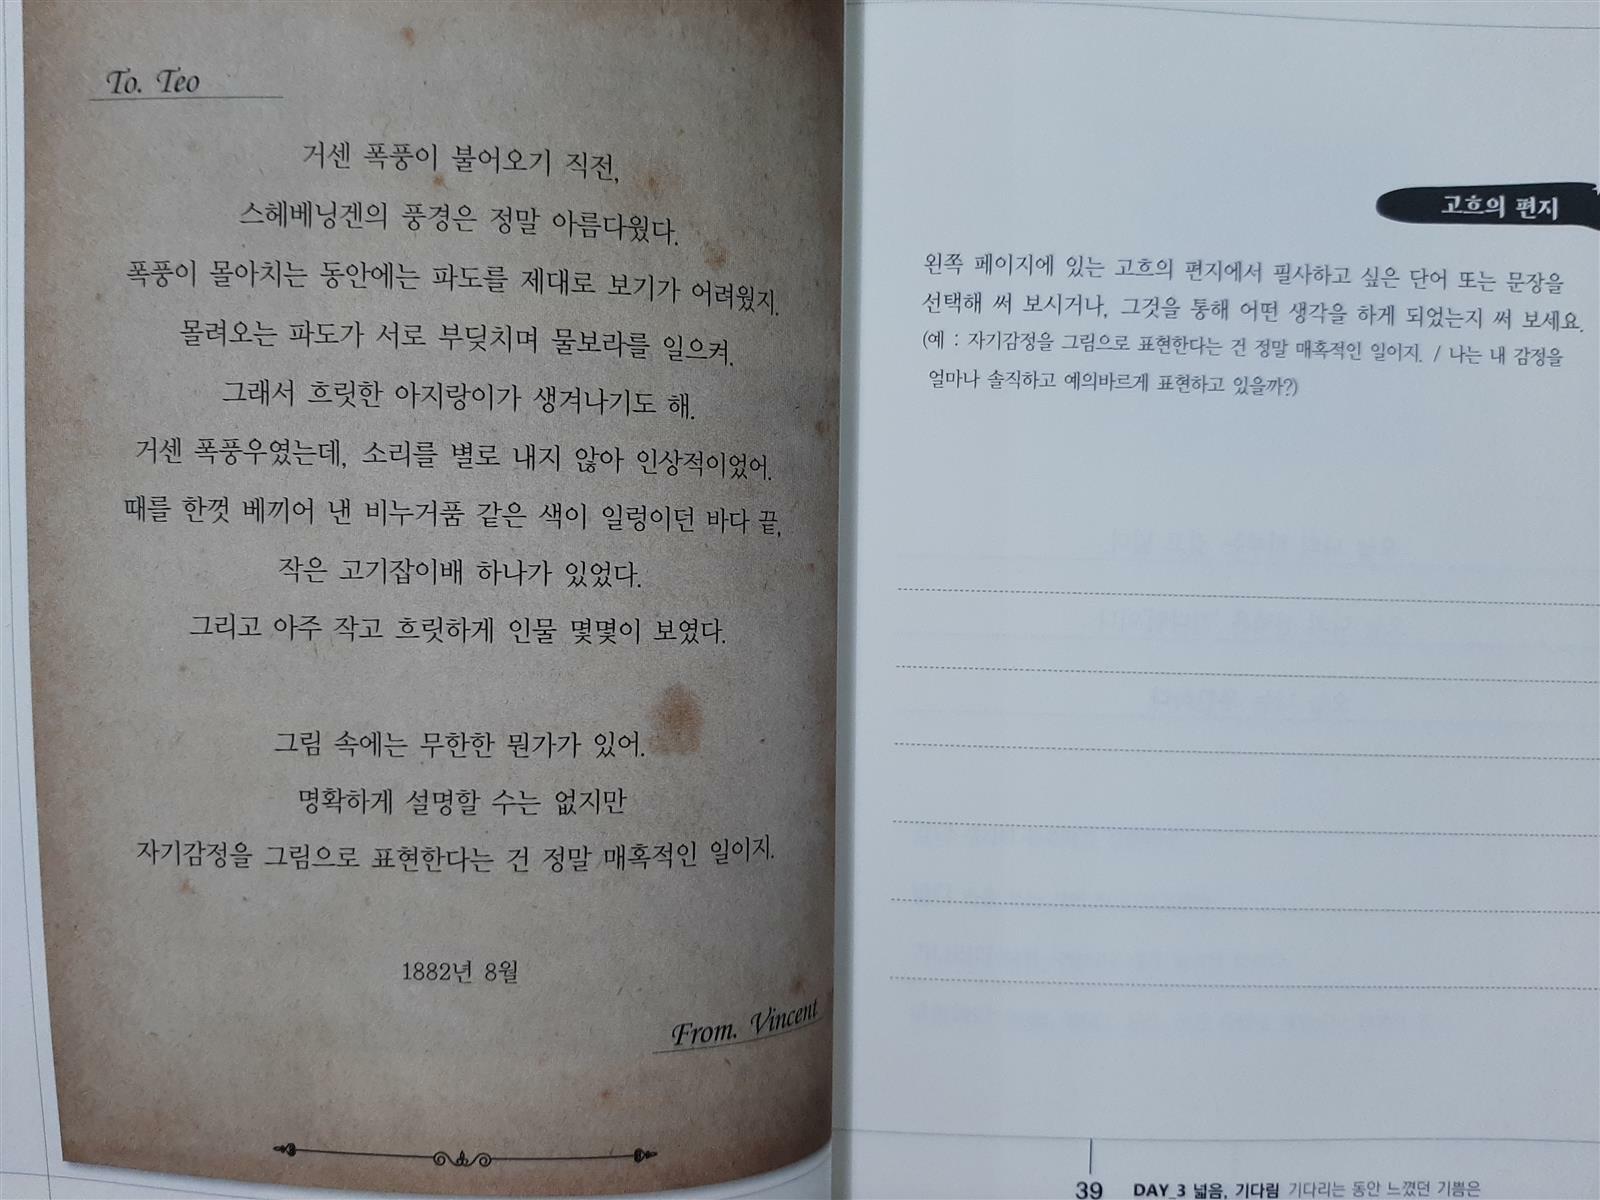 To. Teo
거센 폭풍이 불어오기 직전,
스헤베닝겐의 풍경은 정말 아름다웠다.
폭풍이 몰아치는 동안에는 파도를 제대로 보기가 어려웠지.
몰려오는 파도가 서로 부딪치며 물보라를 일으켜.
그래서 흐릿한 아지랑이가 생겨나기도 해.
거센 폭풍우였는데, 소리를 별로 내지 않아 인상적이었어.
때를 한껏 베끼어 낸 비누거품 같은 색이 일렁이던 바다 끝,
작은 고기잡이배 하나가 있었다.
그리고 아주 작고 흐릿하게 인물 몇몇이 보였다.
그림 속에는 무한한 뭔가가 있어.
명확하게 설명할 수는 없지만
자기감정을 그림으로 표현한다는 건 정말 매혹적인 일이지.
1882년 8월
From. Vincent
고흐의 편지
왼쪽 페이지에 있는 고흐의 편지에서 필사하고 싶은 단어 또는 문장을
선택해 써 보시거나, 그것을 통해 어떤 생각을 하게 되었는지 써 보세요.
(예 : 자기감정을 그림으로 표현한다는 건 정말 매혹적인 일이지. / 나는 내 감정을
얼마나 솔직하고 예의바르게 표현하고 있을까?)
39 DAY_3 넓음, 기다림 기다리는 동안 느꼈던 기쁨은